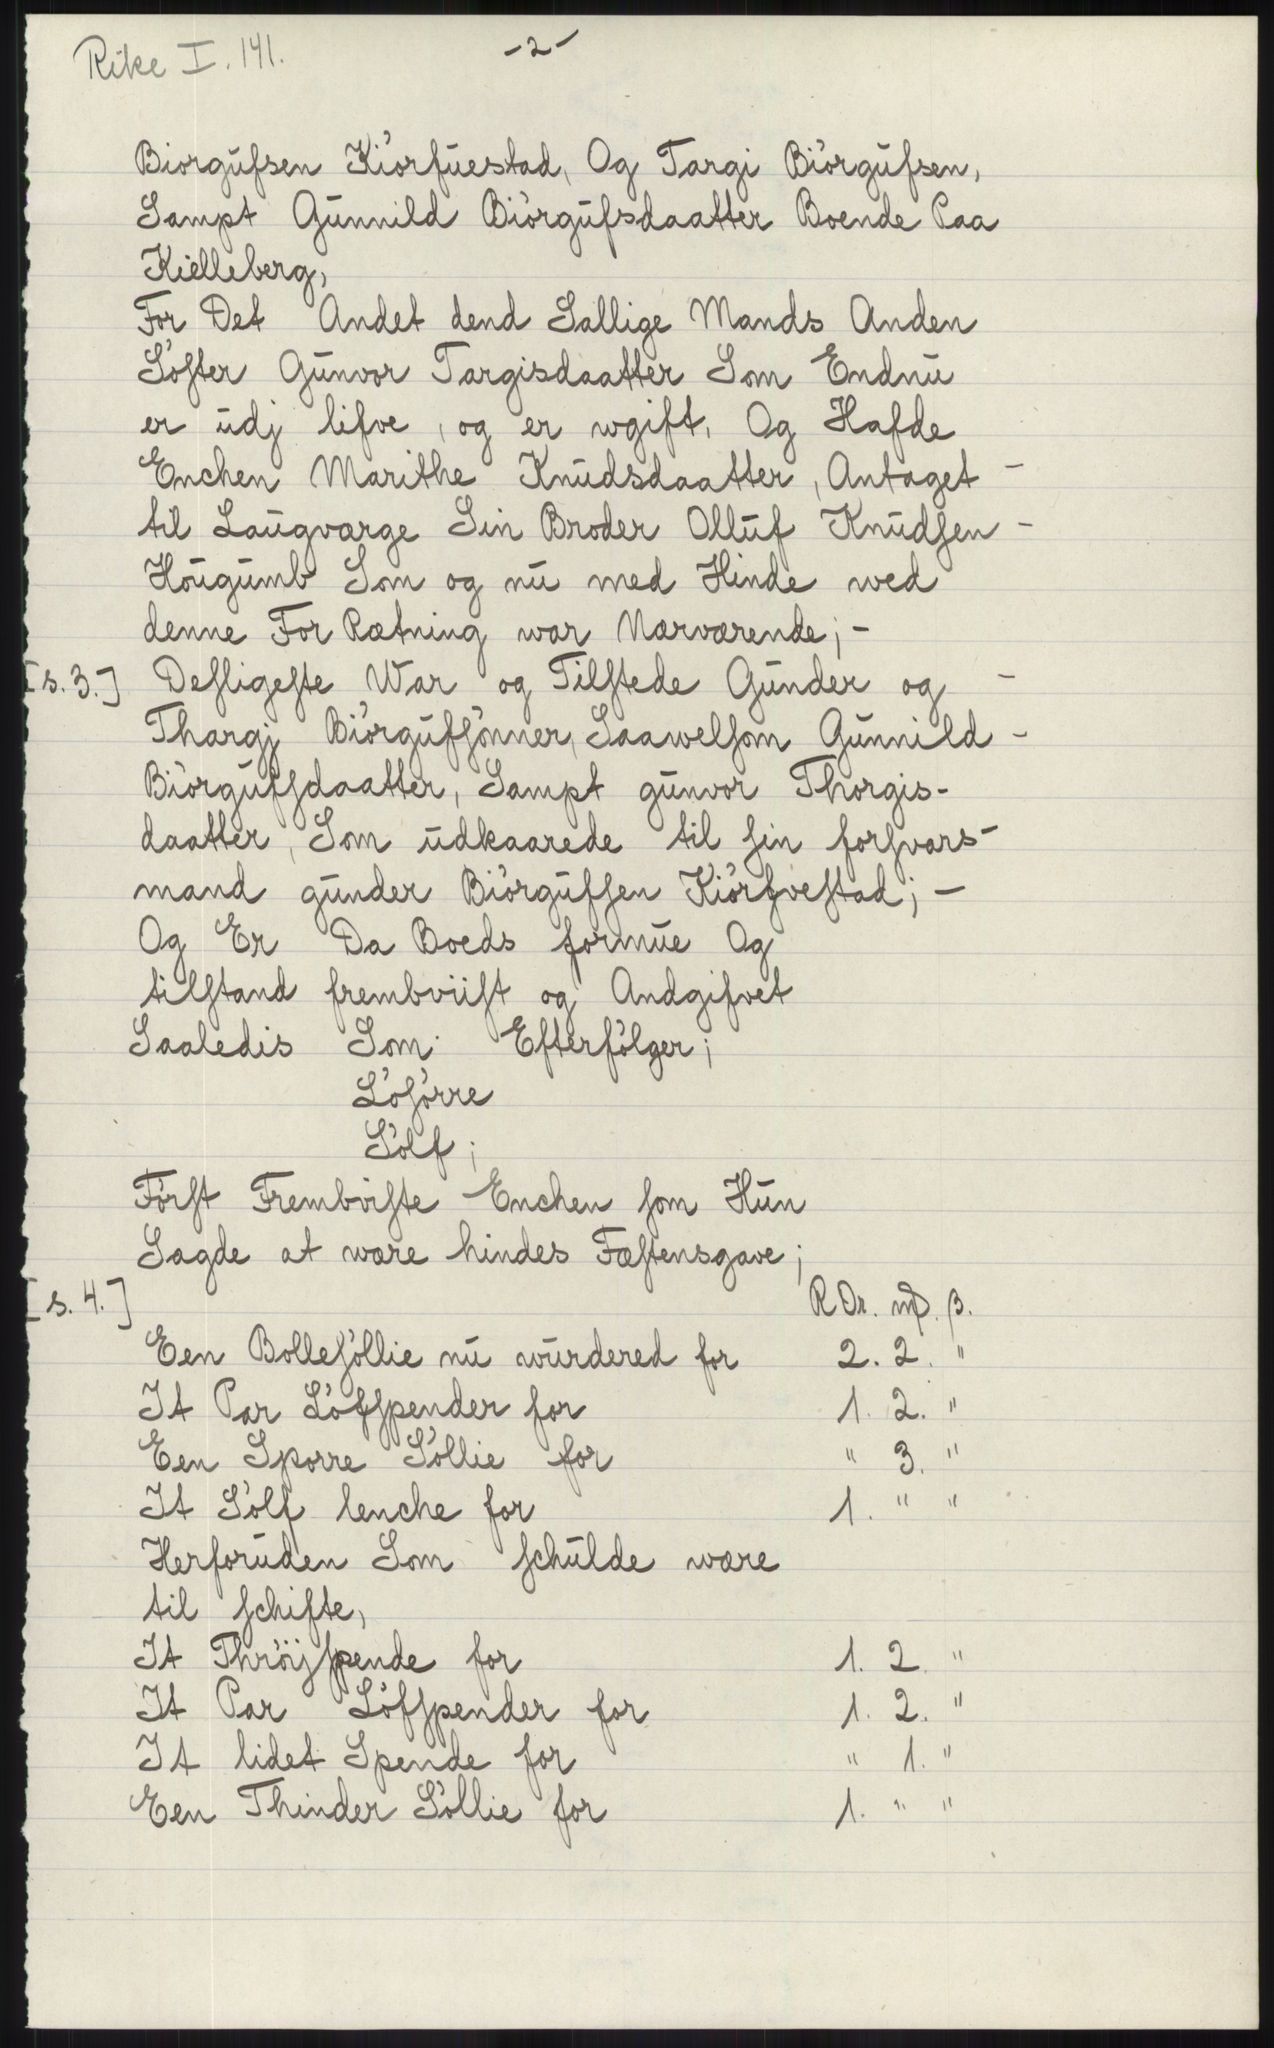 Rike I. 141.
-2-
Biorgufsen Kiorfuestad, Og Targi Biörgufsen,
Sampt Gunnild Biörgufsdaatter Boende Paa
Kielleberg,
For Det Andet dend Sallige Mands Anden
Söster Gunvor Targisdaatter Som Endnu
er udj lifve, og er wgift, Og Hafde
Enchen Marithe Knudsdaatter, Antaget -
til Laugværge Sin Broder Olluf Knudsen -
Hougumb Som og nu med Hinde wed
denne For Rætning war Nærværende; -
[s. 3.] Desligeste War og Tilstede Gunder og -
Thargj Biörgufsönner, Saawelsom Gunnild -
Biörgufsdaatter, Sampt gunvor Thorgis-
daatter, Som udkaarede til sin forsvars-
mand gunder Biörgufsen Kiörfvestad; -
Og Er Da Boeds formue Og
tilstand frembviist og Andgifvet
Saaledis Som Efterfölger;
Lösörre
Sölf;
Först Frembviste Enchen som Hun
Sagde at wære hindes Fæstensgave;
[s. 4.]
R Dr. mƌ. β.
Een Bollesöllie nu wurdered for 2. 2. "
It Par Löfspender for 1. 2. "
Een Sporre Söllie for " 3. "
It Sölf lenche for 1. " "
Herforuden Som schulde wære
til schifte,
It Thröijspende for 1. 2. "
It Par Löfspender for 1. 2. "
It lidet Spende for " 1. "
Een Thinder Söllie for 1. " "